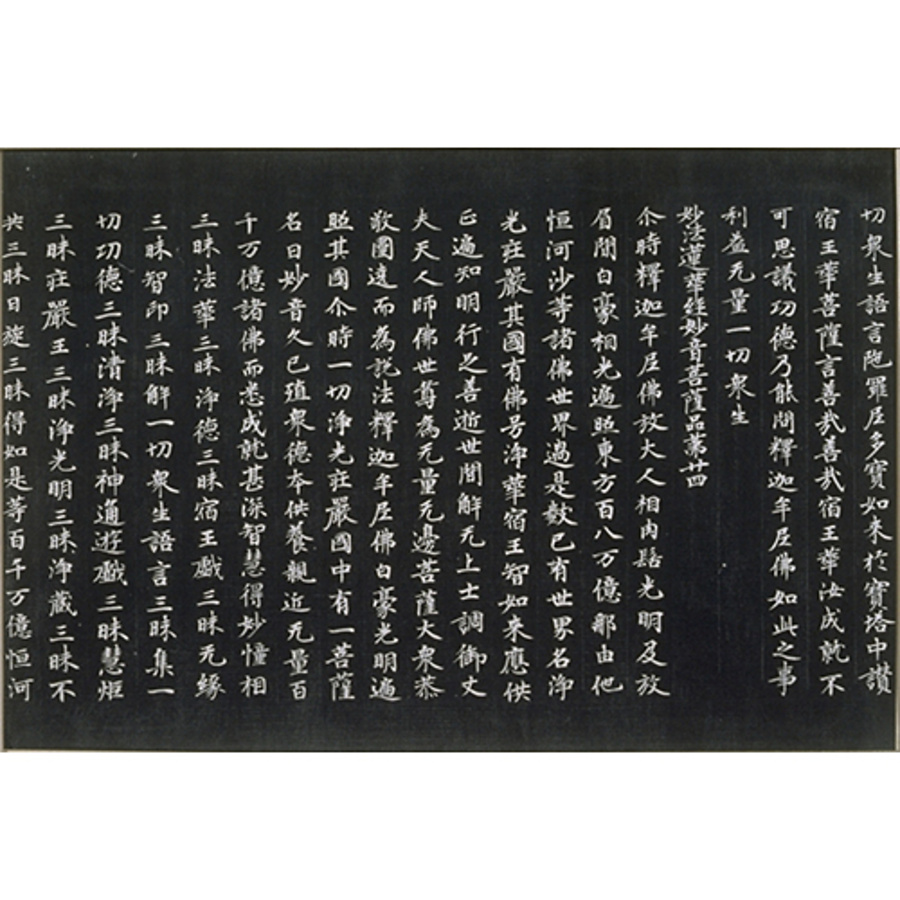 切衆生語言陁羅尼多寶如来於寶塔中讃
宿王華菩薩言善㢤善㢤宿王華汝成就不
可思議功德乃能問釋迦牟尼佛如此之事
利益无量一切衆生
妙法蓮華經妙音菩薩品苐廿四
尒時釋迦牟尼佛放大人相肉髻光明及放
眉間白豪相光遍照東方百八万億那由他
恒河沙等諸佛世界過是數已有世界名淨
光莊嚴其國有佛号淨華宿王智如来應供
正遍知明行足善逝世間解无上士調御丈
夫天人師佛世尊為无量无邊菩薩大衆恭
敬圍遶而為說法釋迦牟尼佛白豪光明遍
照其國尒時一切淨光莊嚴國中有一菩薩
名曰妙音久已殖衆德本供養親近无量百
千万億諸佛而悉成就甚深智慧得妙憧相
三昧法華三昧淨德三昧宿王戲三昧无緣
三昧智印三昧解一切衆生語言三昧集一
切功德三昧清淨三昧神通遊戲三昧慧炬
三昧莊嚴王三昧淨光明三昧淨藏三昧不
共三昧日旋三昧得如是等百千万億恒河